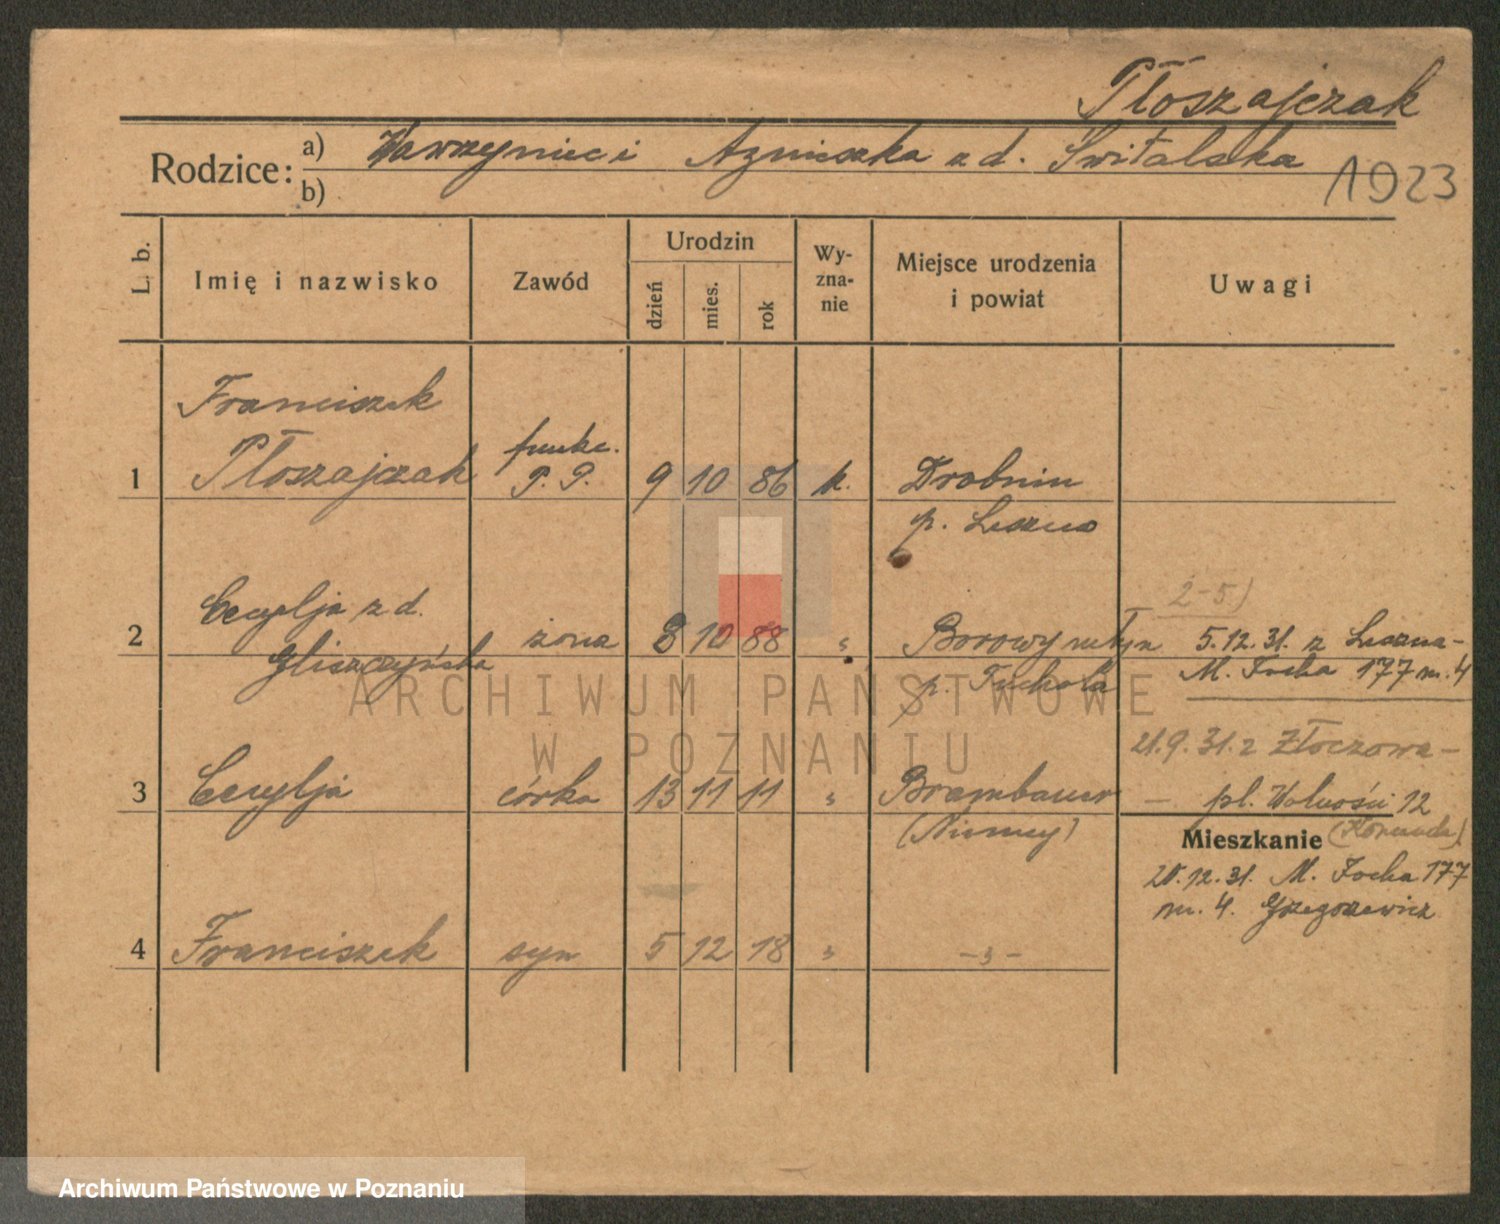 Płoszajczak
Rodzice:
a) Wawrzyniec i Agnieszka z d. Świtalska
b)
1923
L. b.
Imię i nazwisko
Zawód
Urodzin
dzień
mies.
rok
Wy-
zna-
nie
Miejsce urodzenia
i powiat
Uwagi
Franciszek
1 Płoszajczak funkc. P. P. 9 10 86 k. Drobnin
p. Leszno
2 Cecylja z d. żona 8 10 88 „ Borowy młyn
Gliszczyńska p. Tuchola
2-5)
5.12.31. z Leszna-
M. Focha 177 m. 4
21.9.31. z Złoczowa-
3 Cecylja córka 13 11 11 „ Brambauer
(Niemcy)
- pl. Wolności 12
Mieszkanie
20.12.31. M. Focha 177
m. 4. Grzegorzewicz
4 Franciszek syn 5 12 18 „ -„-
ARCHIWUM PAŃSTWOWE
W POZNANIU
Archiwum Państwowe w Poznaniu